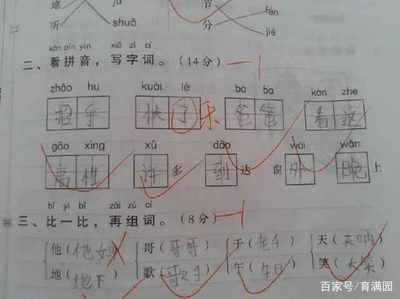 听 shuā 分 jié
kàn pīn yīn xiě zì cí
二、看拼音，写字词。(14分) —1
zhāo hu kuài lè bà ba kàn zhe
招乎 快了乐 爸爸 看这
gāo xìng xǔ dào wài wǎn
高性 许多 到达 外 晚上
bǐ yì bǐ zài zǔ cí
三、比一比，再组词。(8分) —1
他( 哥(哥哥) 天(
地( 歌(歌手) 午( 笑(大笑)
百家号/育满园